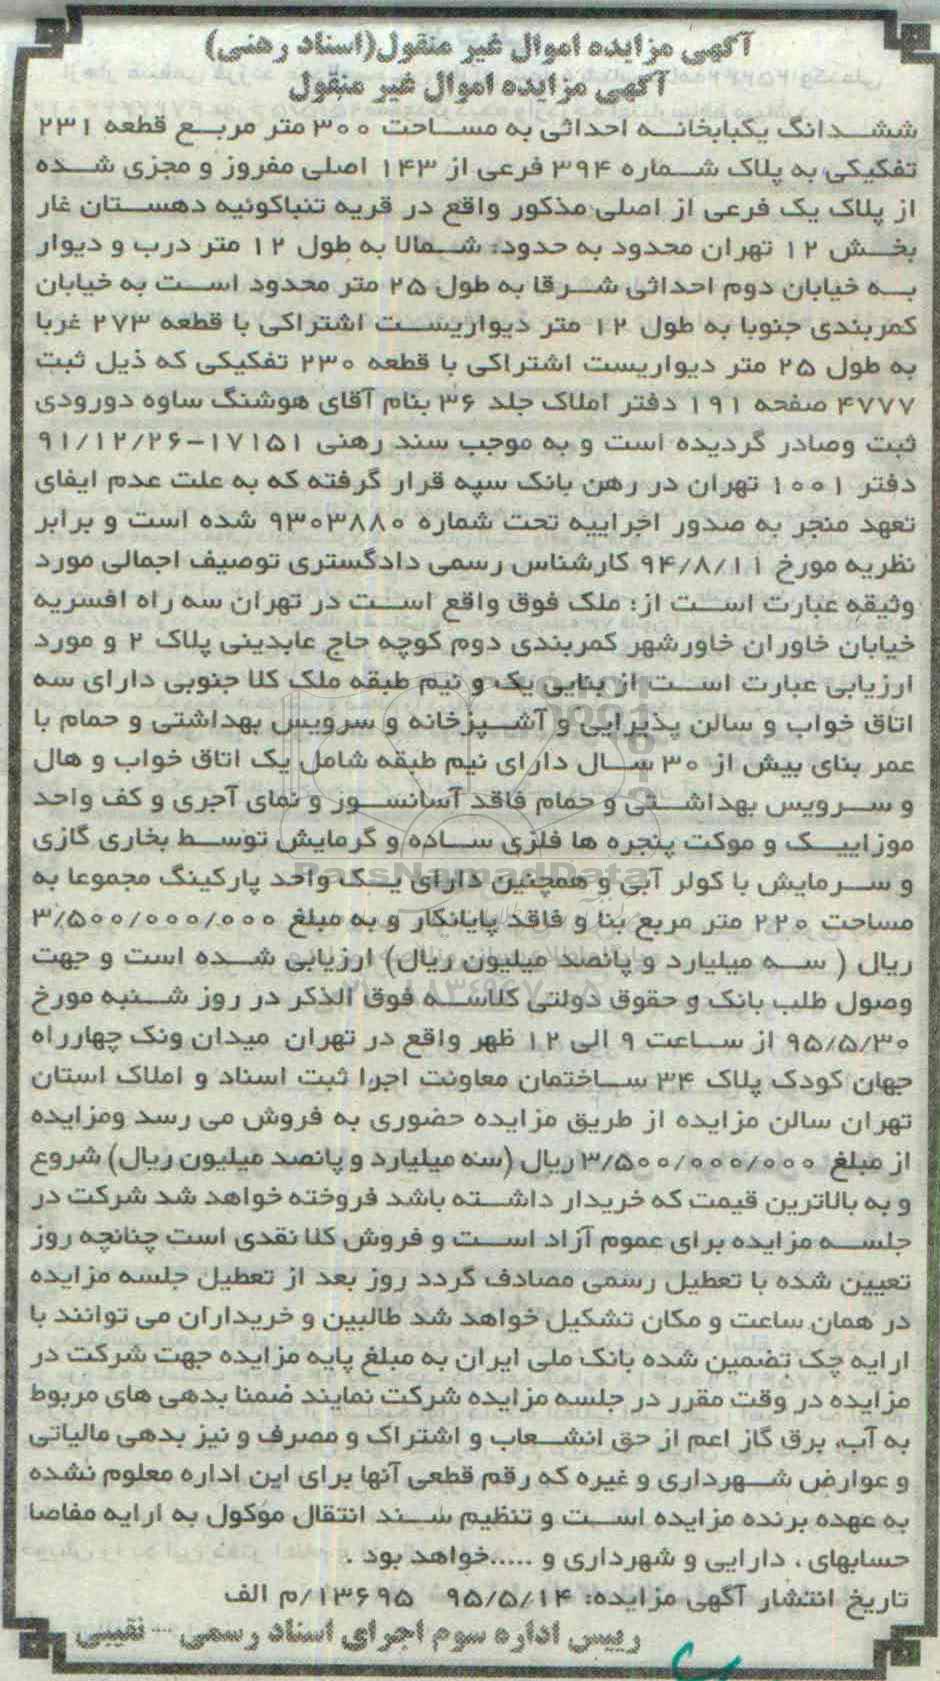 آگهی مزایده اموال غیر منقول(اسناد رهنی)
آگهی مزایده اموال غیر منقول
ششدانگ یکبابخانه احداثی به مساحت ۳۰۰ متر مربع قطعه ۲۳۱
تفکیکی به پلاک شماره ۳۹۴ فرعی از ۱۴۳ اصلی مفروز و مجزی شده
از پلاک یک فرعی از اصلی مذکور واقع در قریه تنباکوئیه دهستان غار
بخش ۱۲ تهران محدود به حدود: شمالا به طول ۱۲ متر درب و دیوار
به خیابان دوم احداثی شرقا به طول ۲۵ متر محدود است به خیابان
کمربندی جنوبا به طول ۱۲ متر دیواریست اشتراکی با قطعه ۲۷۳ غربا
به طول ۲۵ متر دیواریست اشتراکی با قطعه ۲۳۰ تفکیکی که ذیل ثبت
۴۷۷۷ صفحه ۱۹۱ دفتر املاک جلد ۳۶ بنام آقای هوشنگ ساوه دورودی
ثبت وصادر گردیده است و به موجب سند رهنی ۱۷۱۵۱-۹۱/۱۲/۲۶
دفتر ۱۰۰۱ تهران در رهن بانک سپه قرار گرفته که به علت عدم ایفای
تعهد منجر به صدور اجراییه تحت شماره ۹۳۰۳۸۸۰ شده است و برابر
نظریه مورخ ۹۴/۸/۱۱ کارشناس رسمی دادگستری توصیف اجمالی مورد
وثیقه عبارت است از: ملک فوق واقع است در تهران سه راه افسریه
خیابان خاوران خاورشهر کمربندی دوم کوچه حاج عابدینی پلاک ۲ و مورد
ارزیابی عبارت است از بنایی یک و نیم طبقه ملک کلا جنوبی دارای سه
اتاق خواب و سالن پذیرایی و آشپزخانه و سرویس بهداشتی و حمام با
عمر بنای بیش از ۳۰ سال دارای نیم طبقه شامل یک اتاق خواب و هال
و سرویس بهداشتی و حمام فاقد آسانسور و نمای آجری و کف واحد
موزاییک و موکت پنجره ها فلزی ساده و گرمایش توسط بخاری گازی
و سرمایش با کولر آبی و همچنین دارای یک واحد پارکینگ مجموعا به
مساحت ۲۲۰ متر مربع بنا و فاقد پایانکار و به مبلغ ۳/۵۰۰/۰۰۰/۰۰۰
ریال ( سه میلیارد و پانصد میلیون ریال) ارزیابی شده است و جهت
وصول طلب بانک و حقوق دولتی کلاسه فوق الذکر در روز شنبه مورخ
۹۵/۵/۳۰ از ساعت ۹ الی ۱۲ ظهر واقع در تهران میدان ونک چهارراه
جهان کودک پلاک ۳۴ ساختمان معاونت اجرا ثبت اسناد و املاک استان
تهران سالن مزایده از طریق مزایده حضوری به فروش می رسد ومزایده
از مبلغ ۳/۵۰۰/۰۰۰/۰۰۰ ریال (سه میلیارد و پانصد میلیون ریال) شروع
و به بالاترین قیمت که خریدار داشته باشد فروخته خواهد شد شرکت در
جلسه مزایده برای عموم آزاد است و فروش کلا نقدی است چنانچه روز
تعیین شده با تعطیل رسمی مصادف گردد روز بعد از تعطیل جلسه مزایده
در همان ساعت و مکان تشکیل خواهد شد طالبین و خریداران می توانند با
ارایه چک تضمین شده بانک ملی ایران به مبلغ پایه مزایده جهت شرکت در
مزایده در وقت مقرر در جلسه مزایده شرکت نمایند ضمنا بدهی های مربوط
به آب، برق گاز اعم از حق انشعاب و اشتراک و مصرف و نیز بدهی مالیاتی
و عوارض شهرداری و غیره که رقم قطعی آنها برای این اداره معلوم نشده
به عهده برنده مزایده است و تنظیم سند انتقال موکول به ارایه مفاصا
حسابهای ، دارایی و شهرداری و .....خواهد بود .
تاریخ انتشار آگهی مزایده: ۹۵/۵/۱۴ ۱۳۶۹۵/م الف
رییس اداره سوم اجرای اسناد رسمی --- نقیبی
ParsNamadData